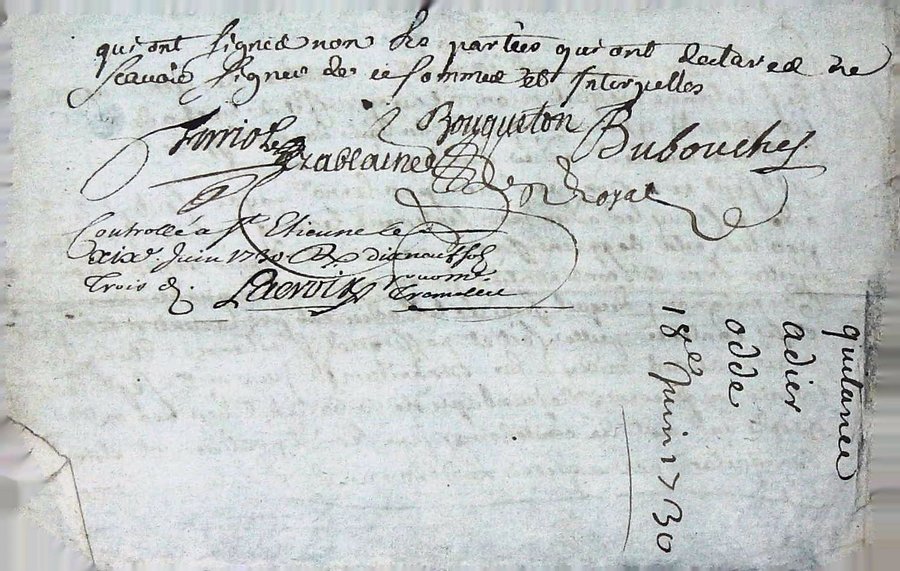 qui ont signed non les parties qui ont declared ne
scavoir signer de ce sommed et Interpelles
Bouqueton
Bubouches
de Royal
Controllé a St Etienne le
xixe. Juin 1730 Rx dixneuf sol
Trois d.
Lacroix
quitance
adier
odde
18e Juin 1730